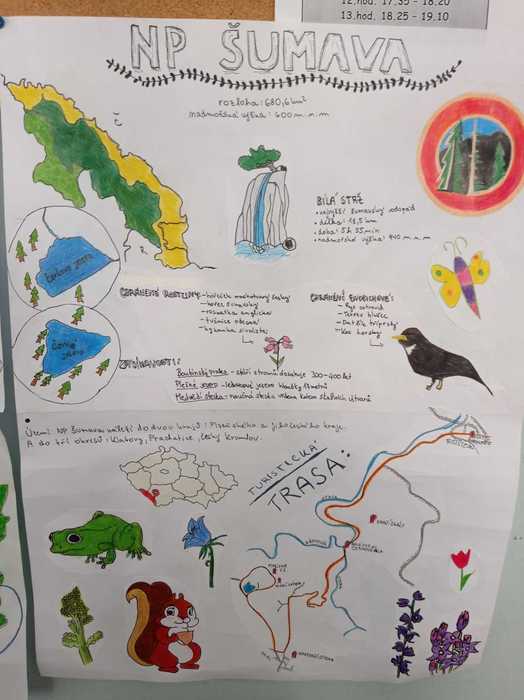 12.hod. 17.35 - 18.20
13.hod. 18.25 - 19.10
NP ŠUMAVA
rozloha: 680,6 km²
nadmořská výška: 600 m.n.m
BÍLÁ STRŽ
• nejvyšší šumavský vodopád
• délka: 18,5 km
• doba: 5h 35min
• nadmořská výška: 940 m.n.m
Čertovo jezero
Černé jezero
OHROŽENÉ ROSTLINY:
- hořeček mnohotvarý český
- hořec šumavský
- rosnatka anglická
OHROŽENÍ ŽIVOČICHOVÉ:
- Rys ostrovid
- Tetřev hlušec
- Datlík tříprstý
- Kos horský
ZAJÍMAVOSTI:
Boubínský prales - stáří stromů dosahuje 300-400 let
Plešné jezero - ledovcové jezero hluboké 18 metrů
Medvědí stezka - naučná stezka vedena kolem skalních útvarů
Území NP Šumava náleží do dvou krajů: Plzeňského a jihočeského kraje.
A do tří okresů: Klatovy, Prachatice, český krumlov.
TURISTICKÁ
TRASA: